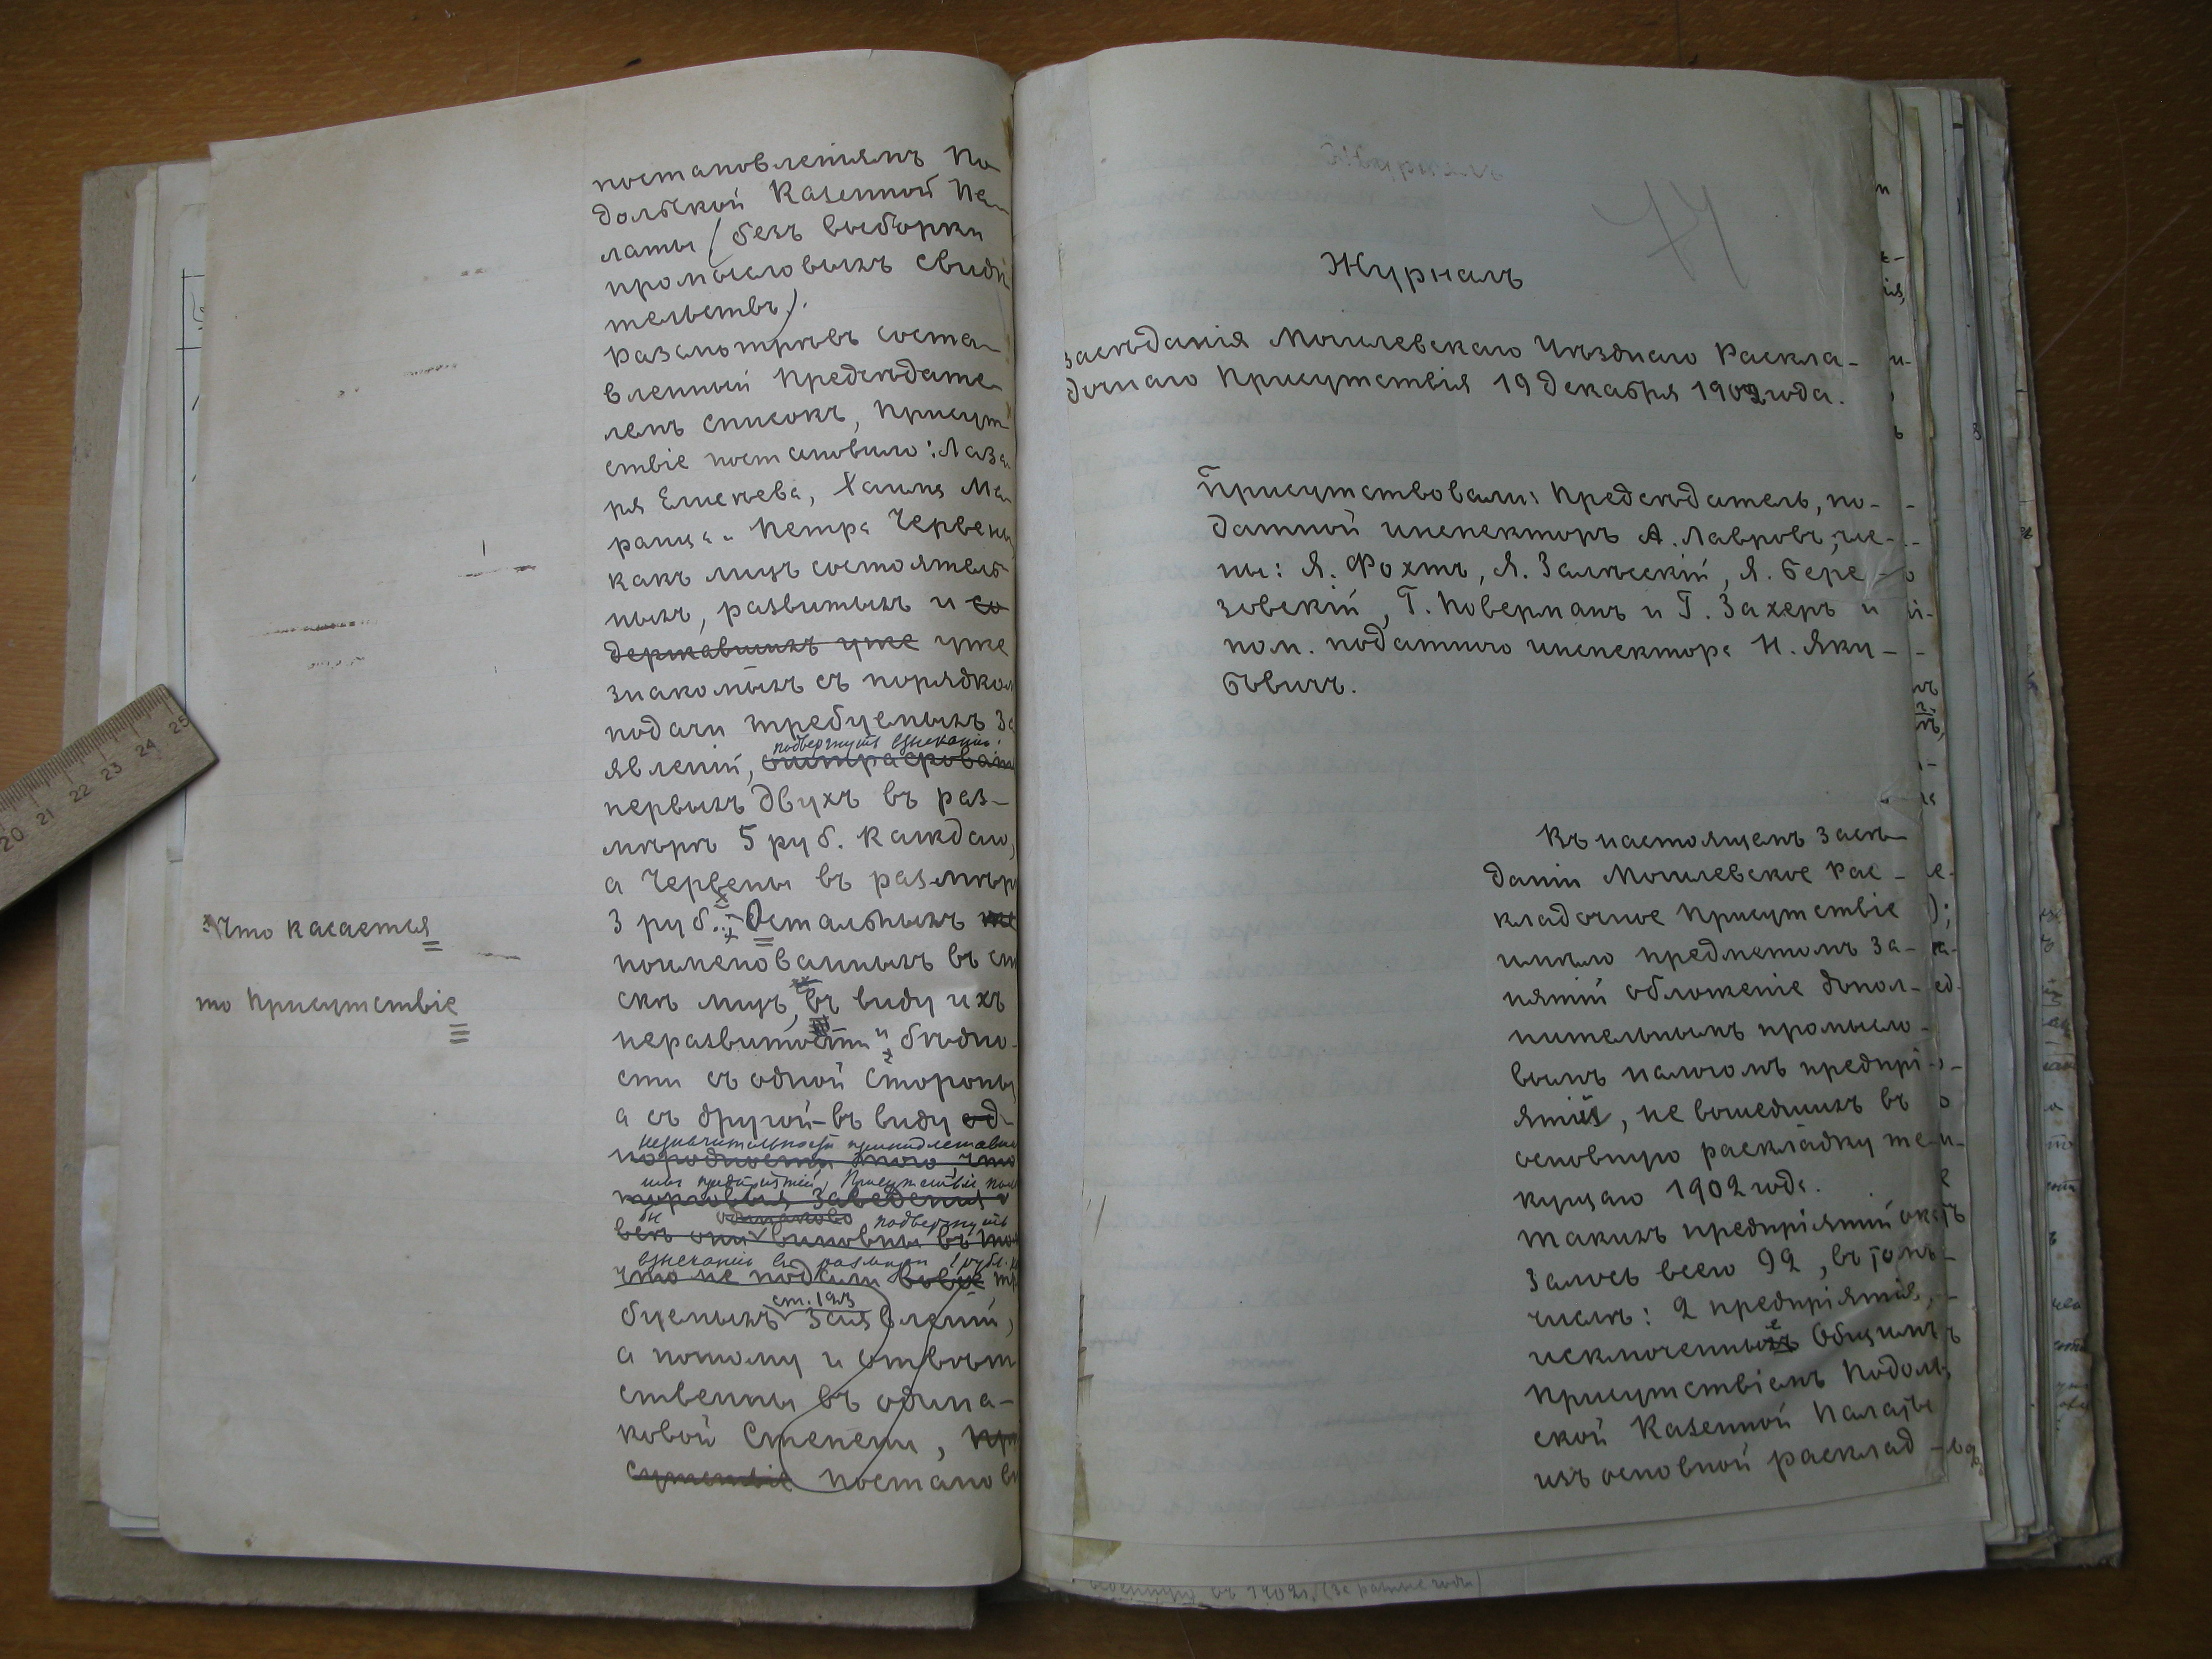 постановленіямъ По-
дольской Казенной Па-
латы (безъ выборки
промысловыхъ свидѣ-
тельствъ).
Разсмотрѣвъ соста-
вленный Предсѣдате-
лемъ списокъ, Присут-
ствіе постановило: Лаза-
ря Елисѣева, Хаима Ма-
ранца и Петра Червены
какъ лицъ состоятель-
ныхъ, развитыхъ и со
державшихъ уже уже
знакомыхъ съ порядком
подачи требуемыхъ за
подвергнуть взысканію:
явленій, оштрафовать
первыхъ двухъ въ раз-
мѣрѣ 5 руб. каждаго,
а Червены въ размѣр
3 руб. Остальныхъ же
Что касается
поименованныхъ въ сп
скѣ лицъ, въ виду ихъ
то Присутствіе
неразвитости и бѣдно-
сти съ одной стороны
а съ другой-въ виду од-
незначительности принадлежавш
народности того, что
имъ предпріятій, Присутствіе
торговыя заведенія
одинаково подвергнуть
всѣ они виновны въ то
взысканію въ размѣрѣ 1 рубл.
что не подали вовсе тр
ст. 123
буемыхъ заявленій,
а потому и отвѣт
ственны въ одина-
ковой степени, При
сутствіе постанови
74
Журналъ
засѣданія Могилевскаго Уѣзднаго Раскла-
дочнаго Присутствія 19 декабря 1902 года.
Присутствовали: Предсѣдатель, по-
датной инспекторъ А. Лавровъ, чле-
ны: Я. Фохтъ, Я. Залѣсскій, Я. Бере-
зовскій, Г. Поверманъ и Г. Захеръ и
пом. податного инспектора Н. Яку-
бовичъ.
Въ настоящемъ засѣ-
даніи Могилевское Рас-
кладочное Присутствіе
имѣло предметомъ за-
нятій обложеніе допол-
нительнымъ промысло-
вымъ налогомъ предпрі-
ятій, не вошедшихъ въ
основную раскладку те-
кущаго 1902 года.
Такихъ предпріятій ока-
залось всего 92, въ томъ
числѣ: 2 предпріятія,
исключенные Общимъ
Присутствіемъ Подоль-
ской Казенной Палаты
изъ основной расклад-